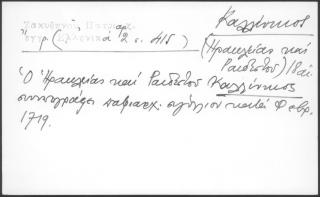 Ζακυθηνοῦ Πατριαρχ.
ἔγγρ. (Ἑλληνικά 2 σ. 415)
Καλλίνικος
(Ἡρακλείας καί
Ραιδεστοῦ) 18 αἰ.
Ὁ Ἡρακλείας καί Ραιδεστοῦ Καλλίνικος
συνυπογράφει πατριαρχ. σιγίλλιον κατά Φεβρ.
1719.